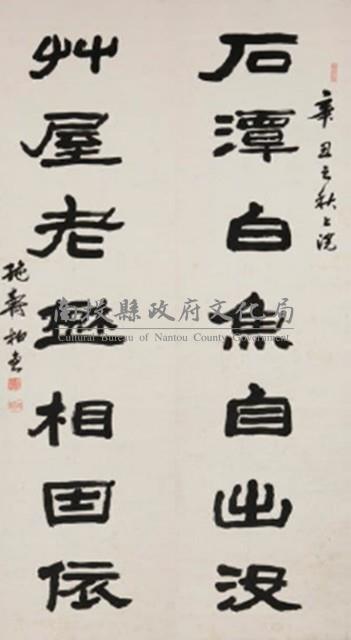 辛丑之秋上浣
石潭白魚自出沒
艸屋老相因依
施壽柏書
南投縣政府文化局
Cultural Bureau of Nantou County Government